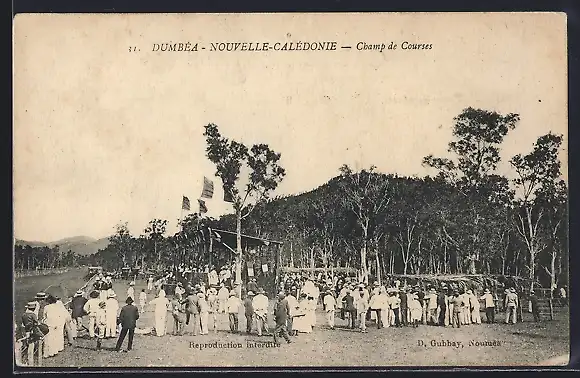 31. DUMBÉA - NOUVELLE-CALÉDONIE — Champ de Courses
Reproduction interdite
D. Gubbay, Nouméa